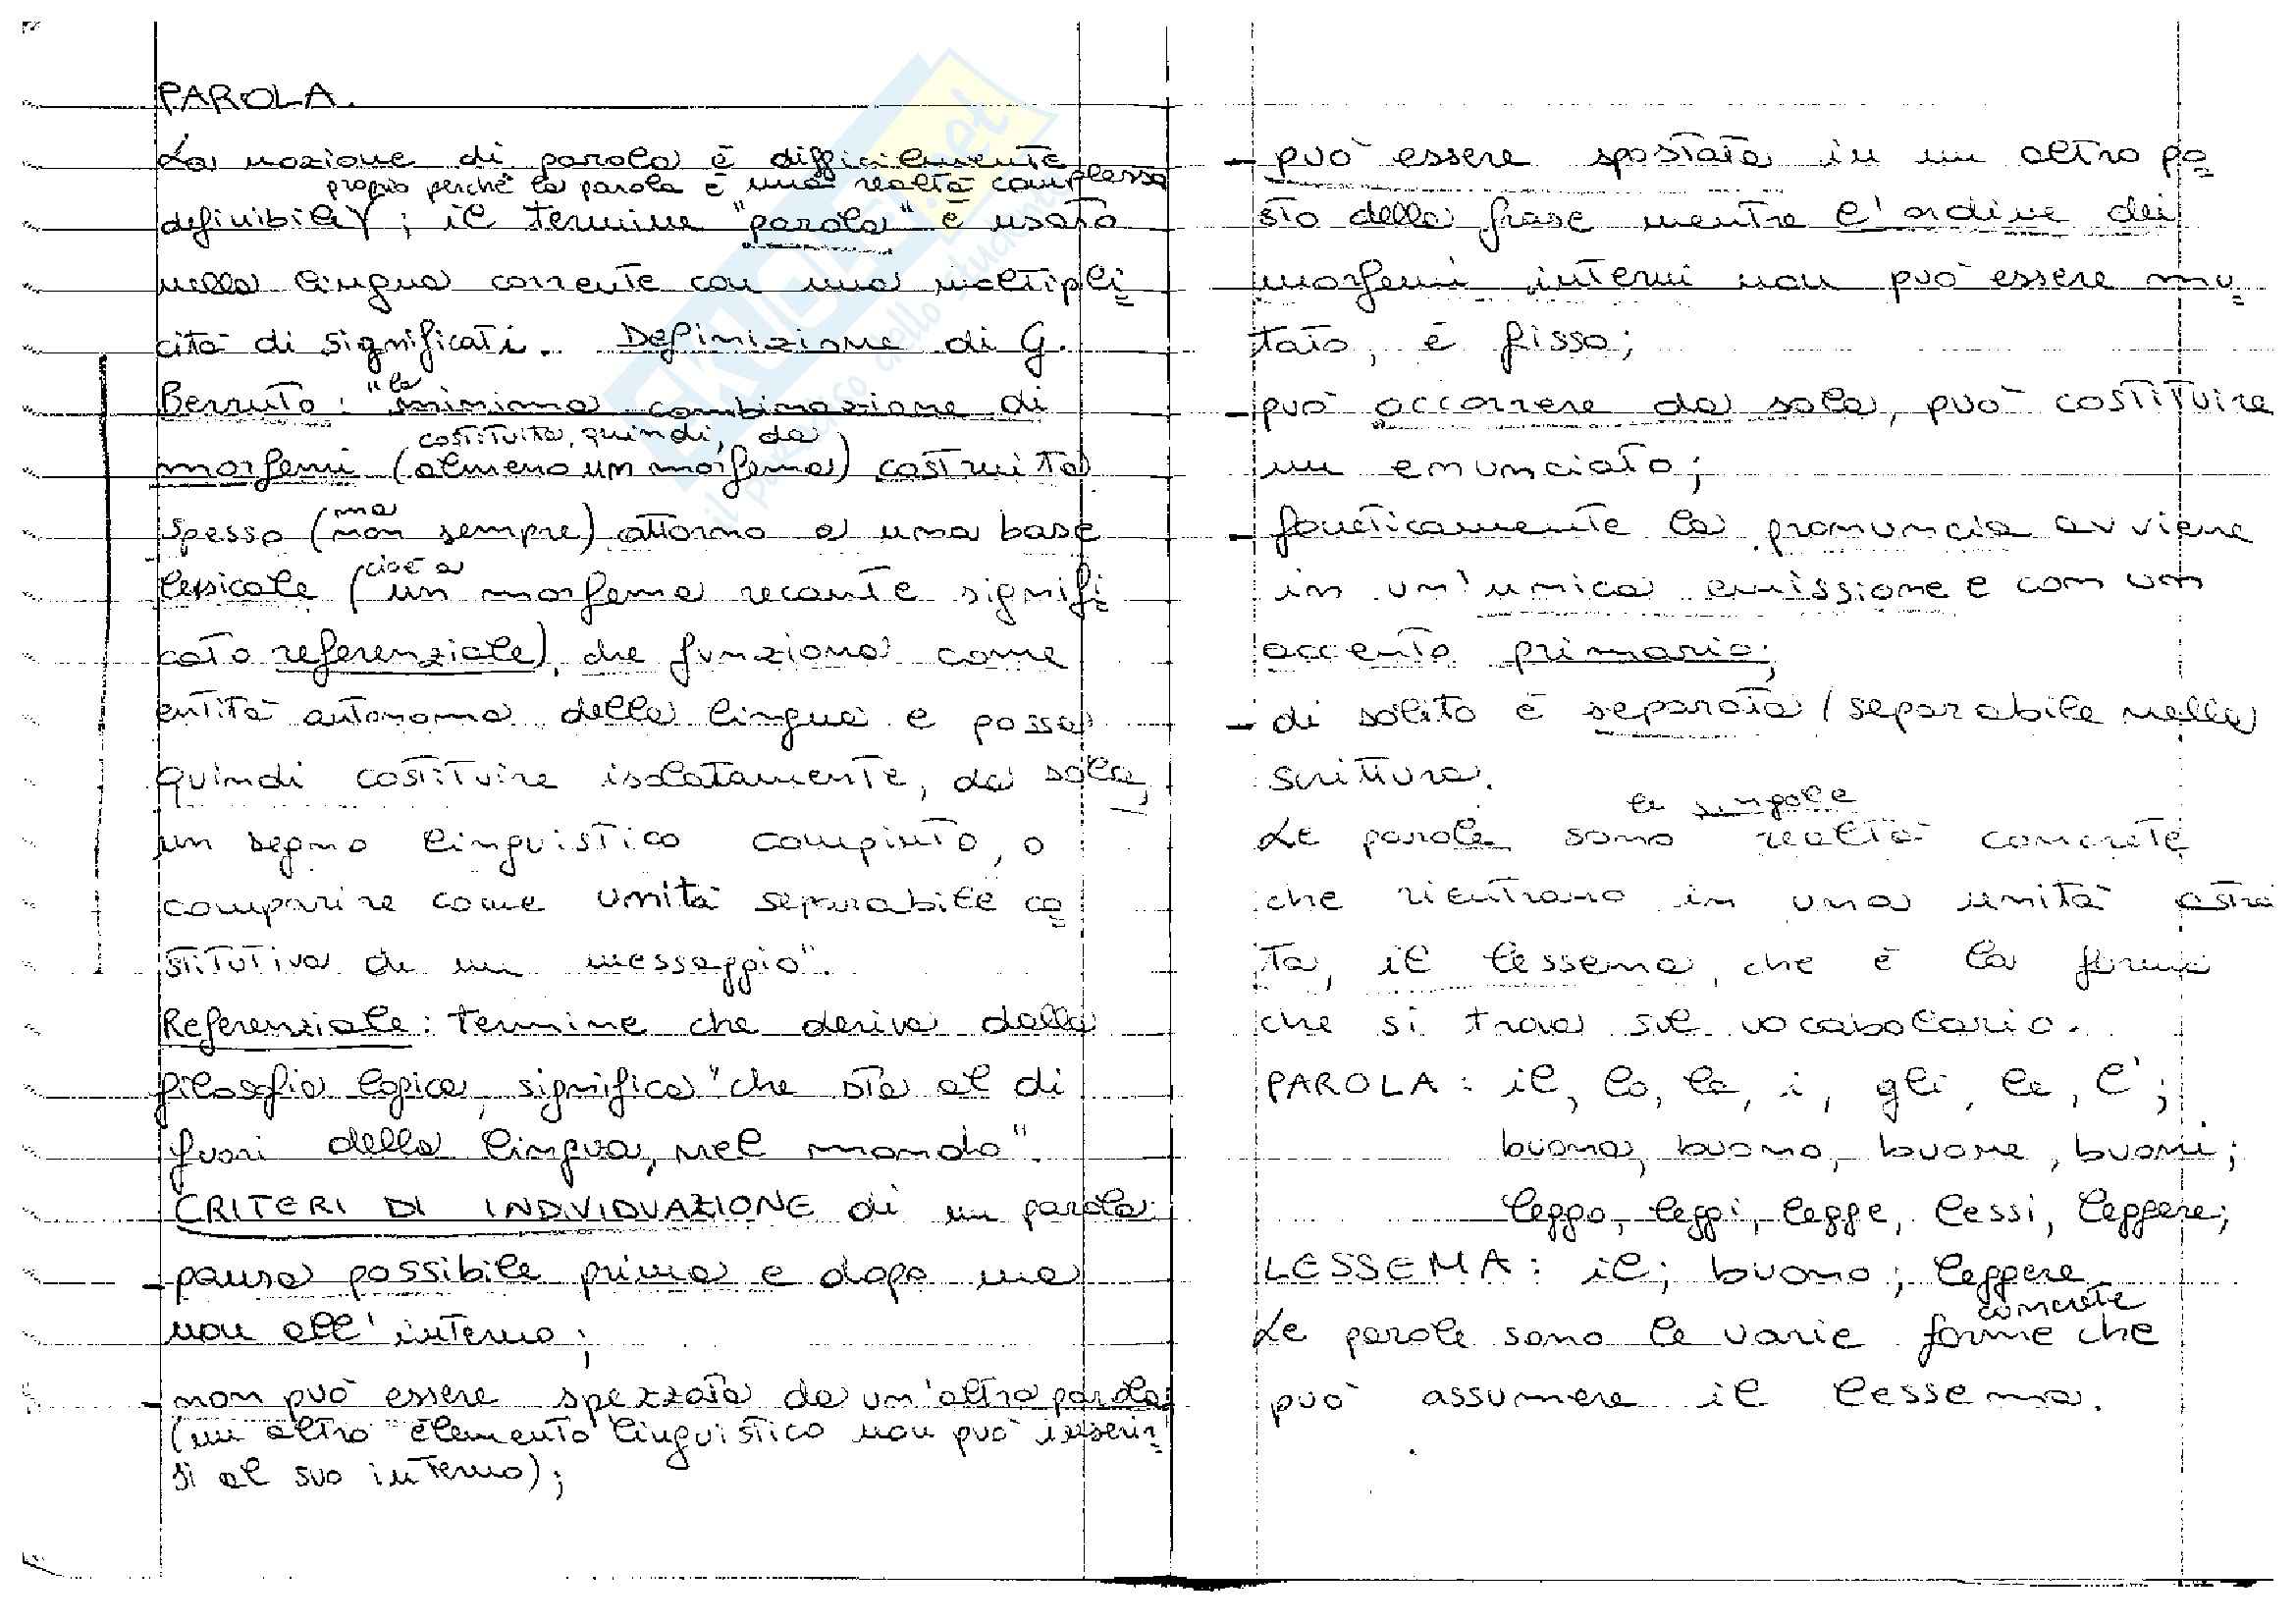 PAROLA.
La nozione di parola è difficilmente
proprio perchè la parola è una realtà complessa
definibile; il termine "parola" è usato
nella lingua corrente con una moltipli=
cità di significati. Definizione di G.
Berruto: "la minima combinazione di
costituita, quindi, da
morfemi (almeno un morfema) costruita
spesso (ma non sempre) attorno a una base
lessicale (cioè a un morfema recante signifi=
cato referenziale), che funziona come
entità autonoma della lingua e possa
quindi costituire isolatamente, da sola,
un segno linguistico compiuto, o
comparire come unità separabile co=
stitutiva di un messaggio".
Referenziale: termine che deriva dalla
filosofia logica, significa "che sta al di
fuori della lingua, nel mondo".
CRITERI DI INDIVIDUAZIONE di un parola:
- pausa possibile prima e dopo ma
non all'interno;
- non può essere spezzata da un'altra parola
(un altro elemento linguistico non può inserir=
si al suo interno);
- può essere spostata in un altro po=
sto della frase mentre l'ordine dei
morfemi interni non può essere mu=
tato, è fisso;
- può occorrere da sola, può costituire
un enunciato;
- foneticamente la pronuncia avviene
in un'unica emissione e con un
accento primario;
- di solito è separata / separabile nella
scrittura.
le singole
Le parole sono realtà concrete
che rientrano in una unità astrat
ta, il lessema, che è la forma
che si trova sul vocabolario.
PAROLA: il, lo, la, i, gli, le, l';
buona, buono, buone, buoni;
leggo, leggi, legge, lessi, leggere;
LESSEMA: il; buono; leggere
concrete
Le parole sono le varie forme che
può assumere il lessema.